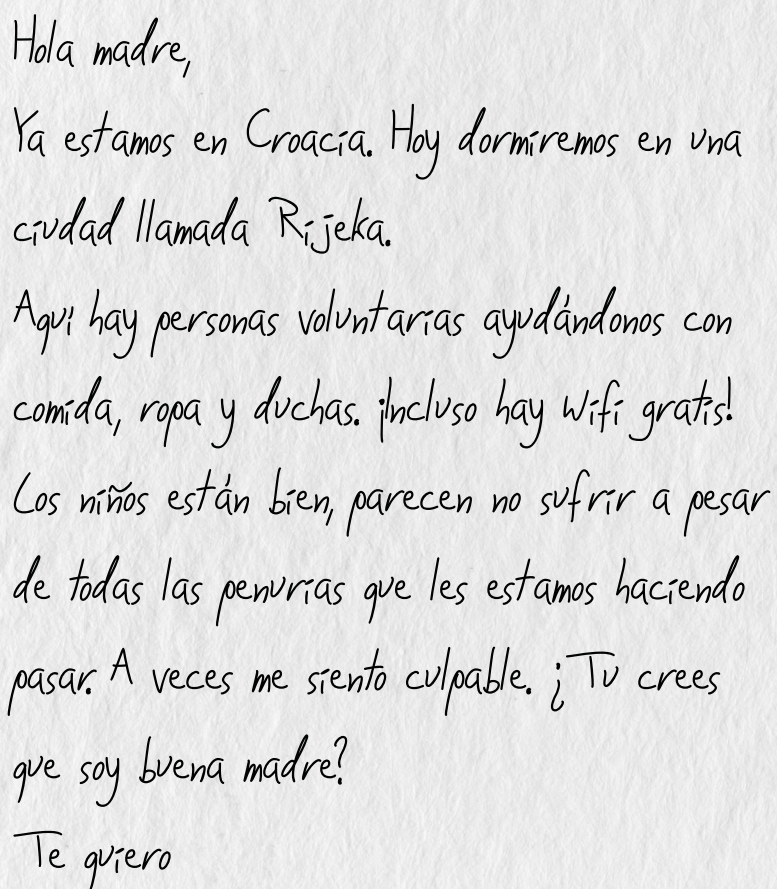 Hola madre,
Ya estamos en Croacia. Hoy dormiremos en una
ciudad llamada Rijeka.
Aquí hay personas voluntarias ayudándonos con
comida, ropa y duchas. ¡Incluso hay wifi gratis!
Los niños están bien, parecen no sufrir a pesar
de todas las penurias que les estamos haciendo
pasar. A veces me siento culpable. ¿Tu crees
que soy buena madre?
Te quiero